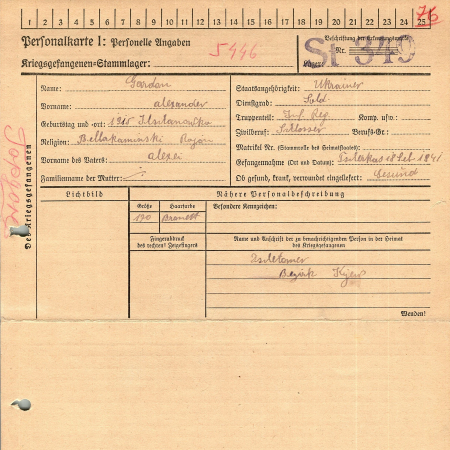 1 2 3 4 5 6 7 8 9 10 11 12 13 14 15 16 17 18 19 20 21 22 23 24 25
76
Personalkarte I: Personelle Angaben
5446
Beschriftung der Erkennungsmarke
Nr.
St 349
Kriegsgefangenen=Stammlager:
Lager:
Des Kriegsgefangenen
Name: Gardan
Vorname: alexander
Geburtstag und -ort: 1915
Religion: Bellakaminski Rogan
Vorname des Vaters: alexei
Familienname der Mutter:
Staatsangehörigkeit: Ukrainer
Dienstgrad: Sold.
Truppenteil: Inf. Reg. Komp. usw.:
Zivilberuf: Schlosser Berufs-Gr.:
Matrikel Nr. (Stammrolle des Heimatstaates):
Gefangennahme (Ort und Datum): 18 Sel. 1941
Ob gesund, krank, verwundet eingeliefert: Gesund
Lichtbild
Nähere Personalbeschreibung
Größe Haarfarbe Besondere Kennzeichen:
170
Fingerabdruck
des rechten! Zeigefingers
Name und Anschrift der zu benachrichtigenden Person in der Heimat
des Kriegsgefangenen
Bezirk Kijew
Wenden!